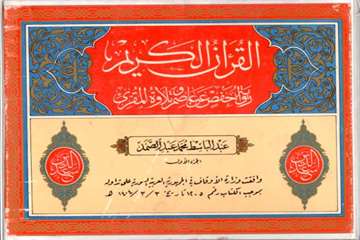 القرآن الكريم
برواية حفص عن عاصم بتلاوة المقرئ
عبد الباسط محمد عبد الصمد
الجزء الأول
وافقت وزارة الأوقاف في الجمهورية العربية السورية على تداوله
بموجب الكتاب رقم